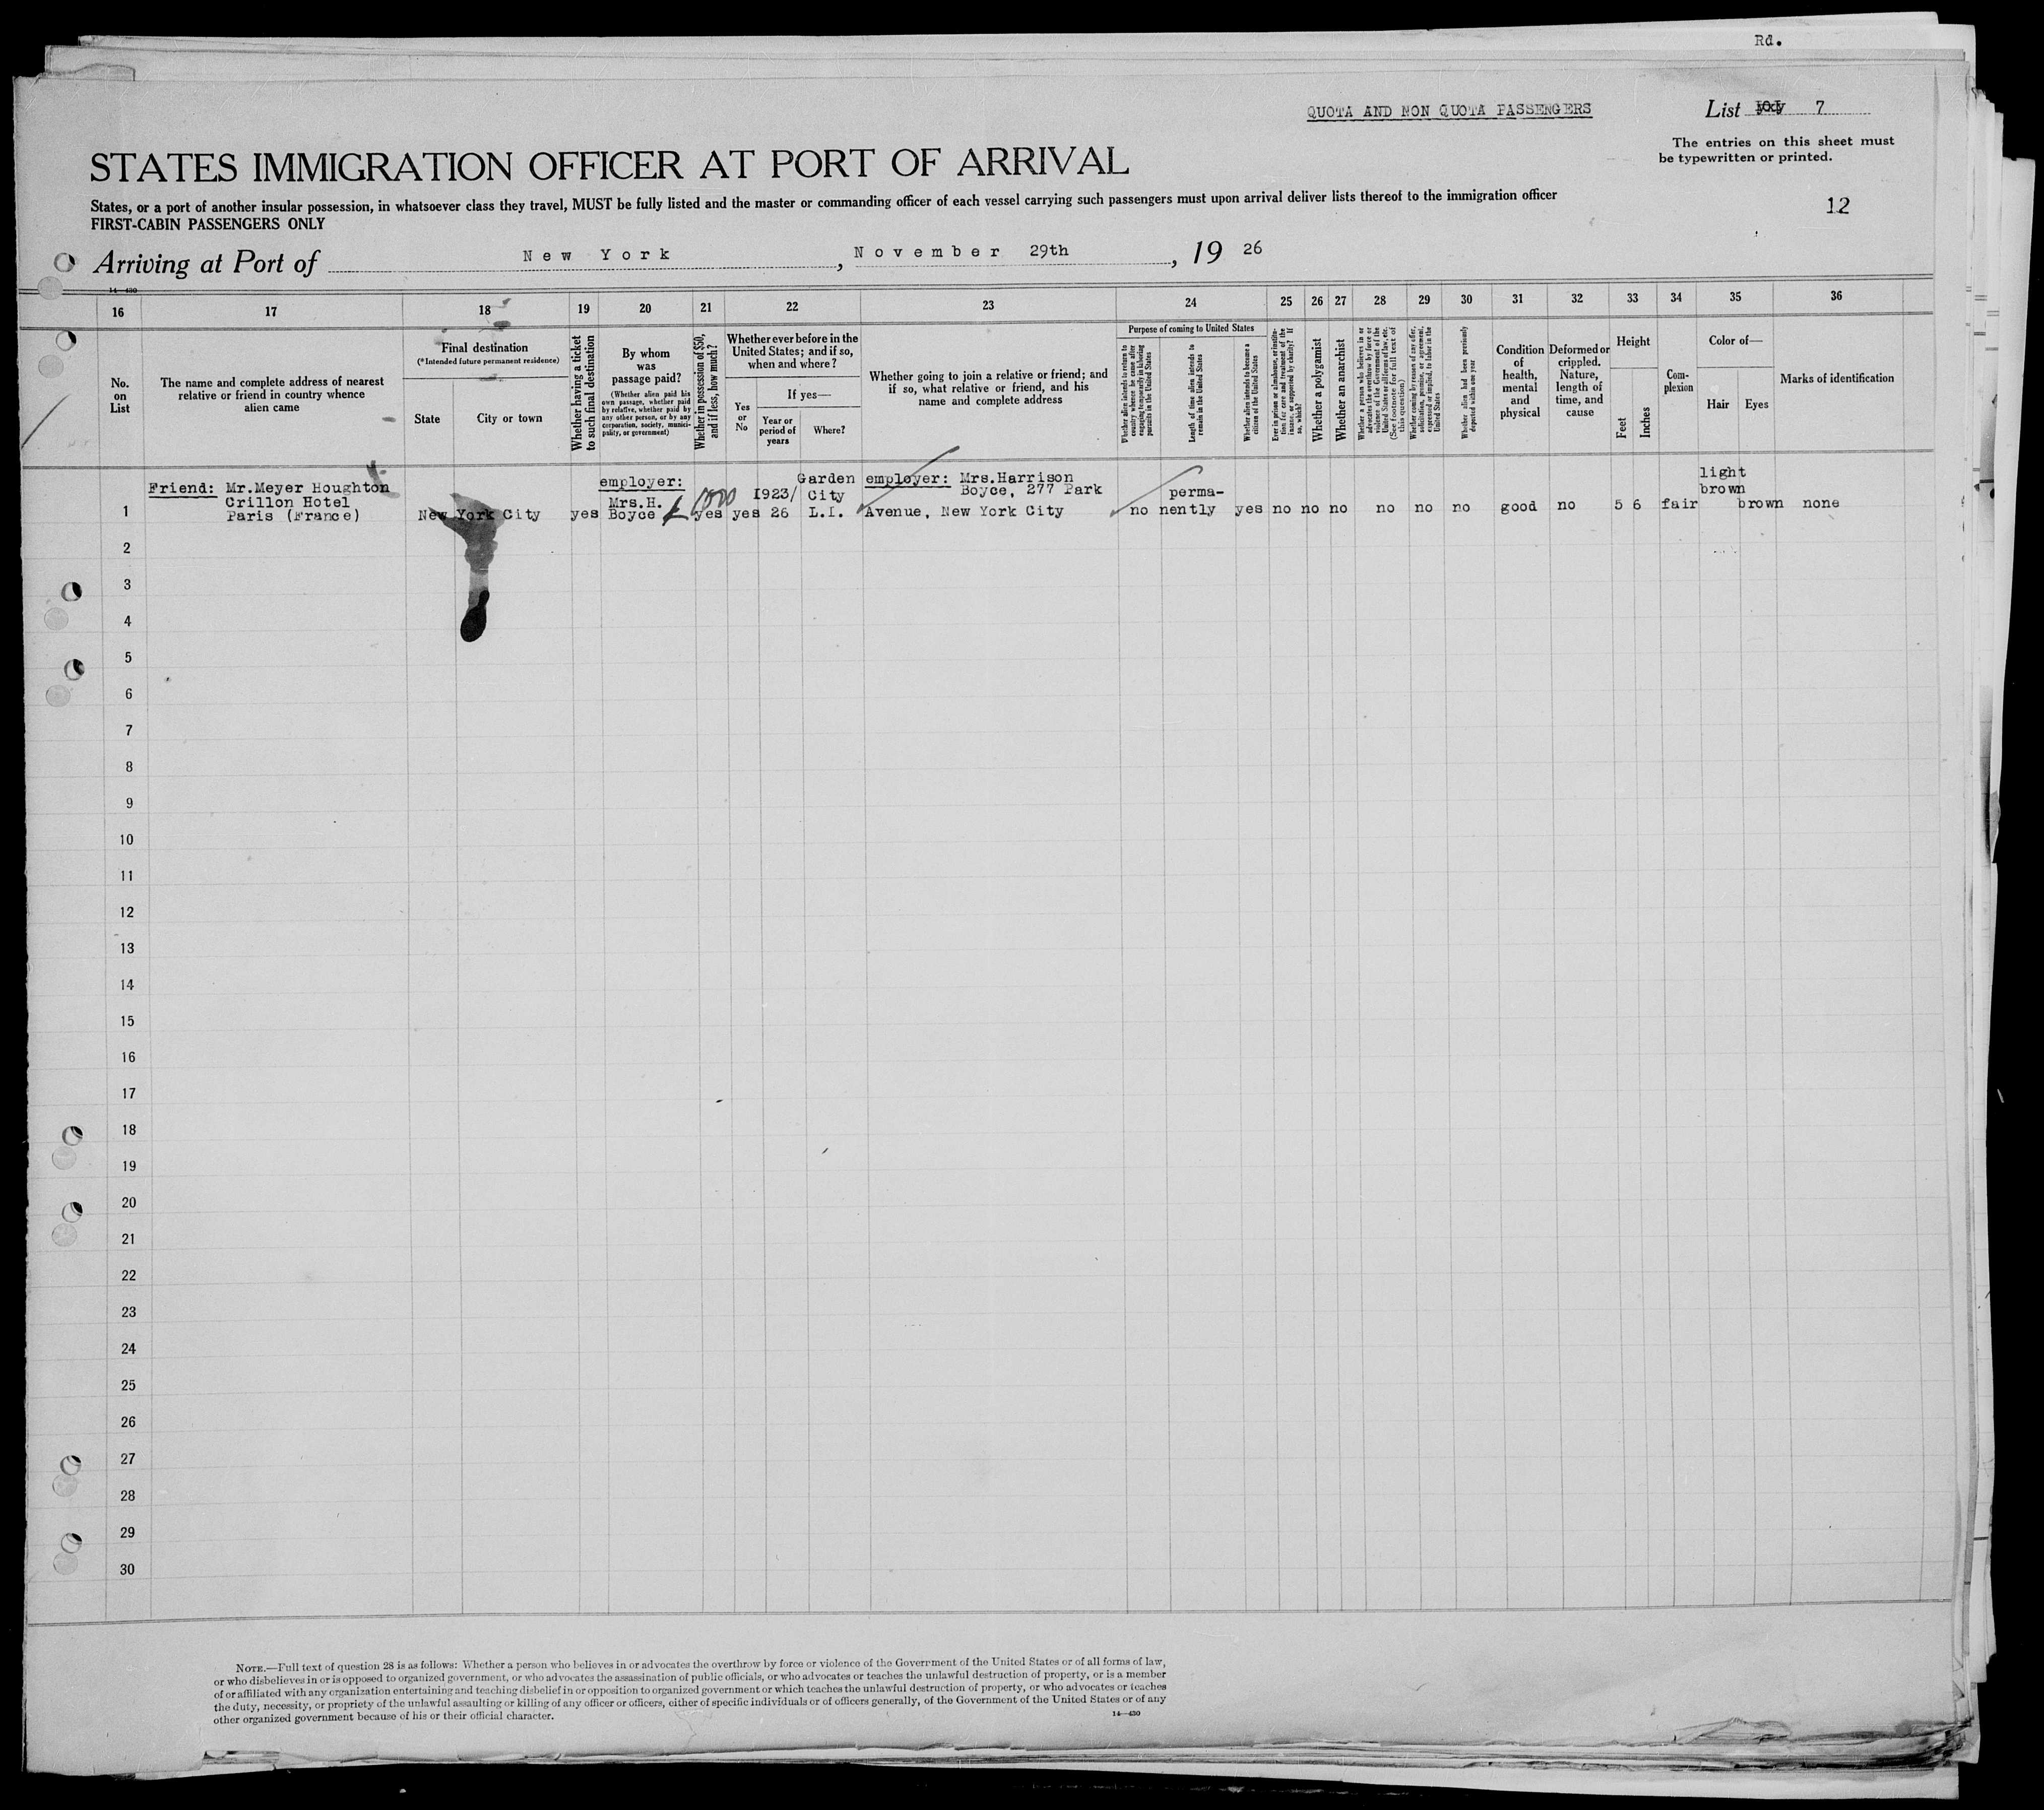 Rd.
QUOTA AND NON QUOTA PASSENGERS
List 7
The entries on this sheet must
be typewritten or printed.
STATES IMMIGRATION OFFICER AT PORT OF ARRIVAL
States, or a port of another insular possession, in whatsoever class they travel, MUST be fully listed and the master or commanding officer of each vessel carrying such passengers must upon arrival deliver lists thereof to the immigration officer
FIRST-CABIN PASSENGERS ONLY
12
Arriving at Port of New York, November 29th, 1926
14—430
16 17 18 19 20 21 22 23 24 25 26 27 28 29 30 31 32 33 34 35 36
No.
on
List
The name and complete address of nearest
relative or friend in country whence
alien came
Final destination
(*Intended future permanent residence)
State
City or town
Whether having a ticket
to such final destination
By whom
was
passage paid?
(Whether alien paid his
own passage, whether paid
by relative, whether paid by
any other person, or by any
corporation, society, munici-
pality, or government)
Whether in possession of $50,
and if less, how much?
Whether ever before in the
United States; and if so,
when and where?
Yes
or
No
If yes—
Year or
period of
years
Where?
Whether going to join a relative or friend; and
if so, what relative or friend, and his
name and complete address
Purpose of coming to United States
Whether alien intends to return to
country whence he came after
engaging temporarily in laboring
pursuits in the United States
Length of time alien intends to
remain in the United States
Whether alien intends to become a
citizen of the United States
Ever in prison or almshouse, or institu-
tion for care and treatment of the
insane, or supported by charity? If
so, which?
Whether a polygamist
Whether an anarchist
Whether a person who believes in or
advocates the overthrow by force or
violence of the Government of the
United States or all forms of law, etc.
(See footnote for full text of
this question.)
Whether coming by reason of any offer,
solicitation, promise, or agreement,
expressed or implied, to labor in the
United States
Whether alien had been previously
deported within one year
Condition
of
health,
mental
and
physical
Deformed or
crippled.
Nature,
length of
time, and
cause
Height
Feet
Inches
Com-
plexion
Color of—
Hair
Eyes
Marks of identification
1
Friend: Mr.Meyer Houghton
Crillon Hotel
Paris (France)
New York City
yes
employer:
Mrs.H.
Boyce
1000
yes
yes
1923/
26
Garden
City
L.I.
employer: Mrs.Harrison
Boyce, 277 Park
Avenue, New York City
no
perma-
nently
yes no no no no no no good no 5 6 fair
light
brown
brown none
2
3
4
5
6
7
8
9
10
11
12
13
14
15
16
17
18
19
20
21
22
23
24
25
26
27
28
29
30
NOTE.—Full text of question 28 is as follows: Whether a person who believes in or advocates the overthrow by force or violence of the Government of the United States or of all forms of law,
or who disbelieves in or is opposed to organized government, or who advocates the assassination of public officials, or who advocates or teaches the unlawful destruction of property, or is a member
of or affiliated with any organization entertaining and teaching disbelief in or opposition to organized government or which teaches the unlawful destruction of property, or who advocates or teaches
the duty, necessity, or propriety of the unlawful assaulting or killing of any officer or officers, either of specific individuals or of officers generally, of the Government of the United States or of any
other organized government because of his or their official character.
14—430